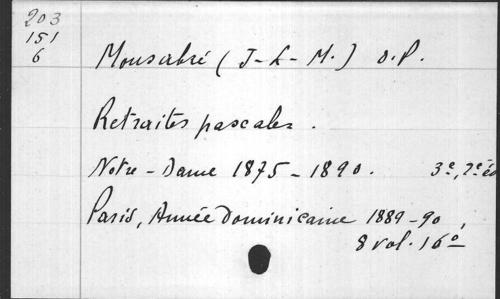 203
151
6
Monsabré (J-L-M.) O.P.
Retraites pascales.
Notre-Dame 1875-1890. 3e, 2e éd
Paris, Année Dominicaine 1889-90,
8 vol. 16o